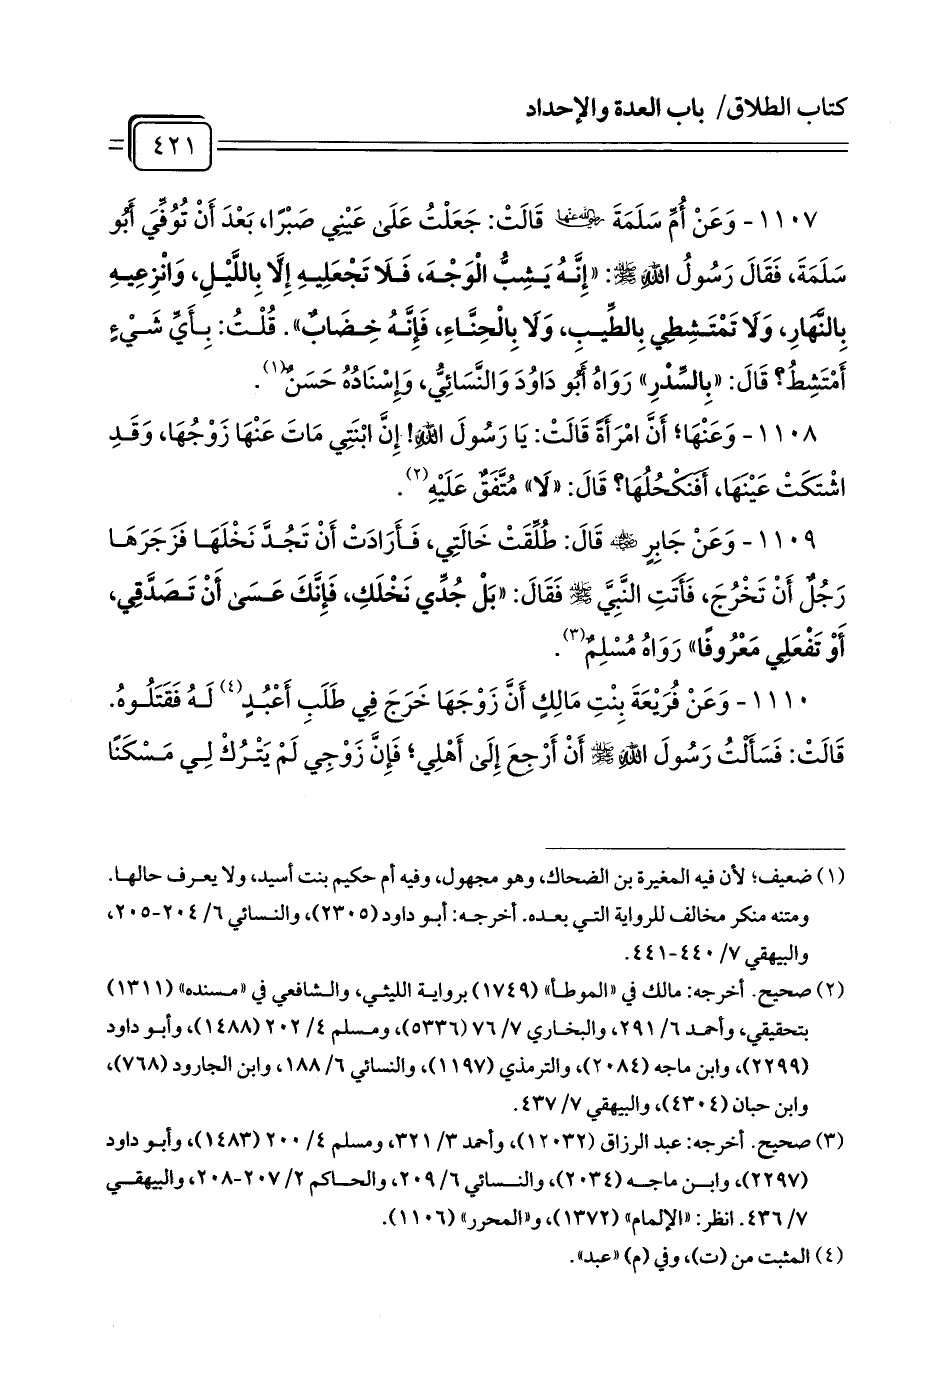 كتاب الطلاق/ باب العدة والإحداد
٤٢١
١١٠٧- وَعَنْ أُمِّ سَلَمَةَ رضي الله عنها قَالَتْ: جَعَلْتُ عَلَىٰ عَيْنِي صَبْرًا، بَعْدَ أَنْ تُوُفِّيَ أَبُو
سَلَمَةَ، فَقَالَ رَسُولُ اللهِ ﷺ: «إِنَّهُ يَشِبُّ الْوَجْهَ، فَلَا تَجْعَلِيهِ إِلَّا بِاللَّيْلِ، وَانْزِعِيهِ
بِالنَّهَارِ، وَلَا تَمْتَشِطِي بِالطِّيبِ، وَلَا بِالْحِنَّاءِ، فَإِنَّهُ خِضَابٌ». قُلْتُ: بِأَيِّ شَيْءٍ
أَمْتَشِطُ؟ قَالَ: «بِالسِّدْرِ» رَوَاهُ أَبُو دَاوُدَ وَالنَّسَائِيُّ، وَإِسْنَادُهُ حَسَنٌ(١).
١١٠٨- وَعَنْهَا؛ أَنَّ امْرَأَةً قَالَتْ: يَا رَسُولَ اللهِ! إِنَّ ابْنَتِي مَاتَ عَنْهَا زَوْجُهَا، وَقَدِ
اشْتَكَتْ عَيْنَهَا، أَفَنَكْحُلُهَا؟ قَالَ: «لَا» مُتَّفَقٌ عَلَيْهِ(٢).
١١٠٩- وَعَنْ جَابِرٍ رضي الله عنه قَالَ: طُلِّقَتْ خَالَتِي، فَأَرَادَتْ أَنْ تَجُدَّ نَخْلَهَا فَزَجَرَهَا
رَجُلٌ أَنْ تَخْرُجَ، فَأَتَتِ النَّبِيَّ ﷺ فَقَالَ: «بَلْ جُدِّي نَخْلَكِ، فَإِنَّكَ عَسَىٰ أَنْ تَصَدَّقِي،
أَوْ تَفْعَلِي مَعْرُوفًا» رَوَاهُ مُسْلِمٌ(٣).
١١١٠- وَعَنْ فُرَيْعَةَ بِنْتِ مَالِكٍ أَنَّ زَوْجَهَا خَرَجَ فِي طَلَبِ أَعْبُدٍ(٤) لَهُ فَقَتَلُوهُ.
قَالَتْ: فَسَأَلْتُ رَسُولَ اللهِ ﷺ أَنْ أَرْجِعَ إِلَىٰ أَهْلِي؛ فَإِنَّ زَوْجِي لَمْ يَتْرُكْ لِي مَسْكَنًا
(١) ضعيف؛ لأن فيه المغيرة بن الضحاك، وهو مجهول، وفيه أم حكيم بنت أسيد، ولا يعرف حالها.
ومتنه منكر مخالف للرواية التي بعده. أخرجه: أبو داود (٢٣٠٥)، والنسائي ٦/ ٢٠٤-٢٠٥،
والبيهقي ٧/ ٤٤٠-٤٤١.
(٢) صحيح. أخرجه: مالك في «الموطأ» (١٧٤٩) برواية الليثي، والشافعي في «مسنده» (١٣١١)
بتحقيقي، وأحمد ٦/ ٢٩١، والبخاري ٧/ ٧٦ (٥٣٣٦)، ومسلم ٤/ ٢٠٢ (١٤٨٨)، وأبو داود
(٢٢٩٩)، وابن ماجه (٢٠٨٤)، والترمذي (١١٩٧)، والنسائي ٦/ ١٨٨، وابن الجارود (٧٦٨)،
وابن حبان (٤٣٠٤)، والبيهقي ٧/ ٤٣٧.
(٣) صحيح. أخرجه: عبد الرزاق (١٢٠٣٢)، وأحمد ٣/ ٣٢١، ومسلم ٤/ ٢٠٠ (١٤٨٣)، وأبو داود
(٢٢٩٧)، وابن ماجه (٢٠٣٤)، والنسائي ٦/ ٢٠٩، والحاكم ٢/ ٢٠٧-٢٠٨، والبيهقي
٧/ ٤٣٦. انظر: «الإلمام» (١٣٧٢)، و«المحرر» (١١٠٦).
(٤) المثبت من (ت)، وفي (م) «عبد».